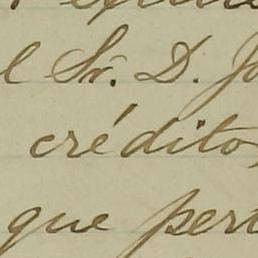 el Sr. D. Jo
créditos
que pert